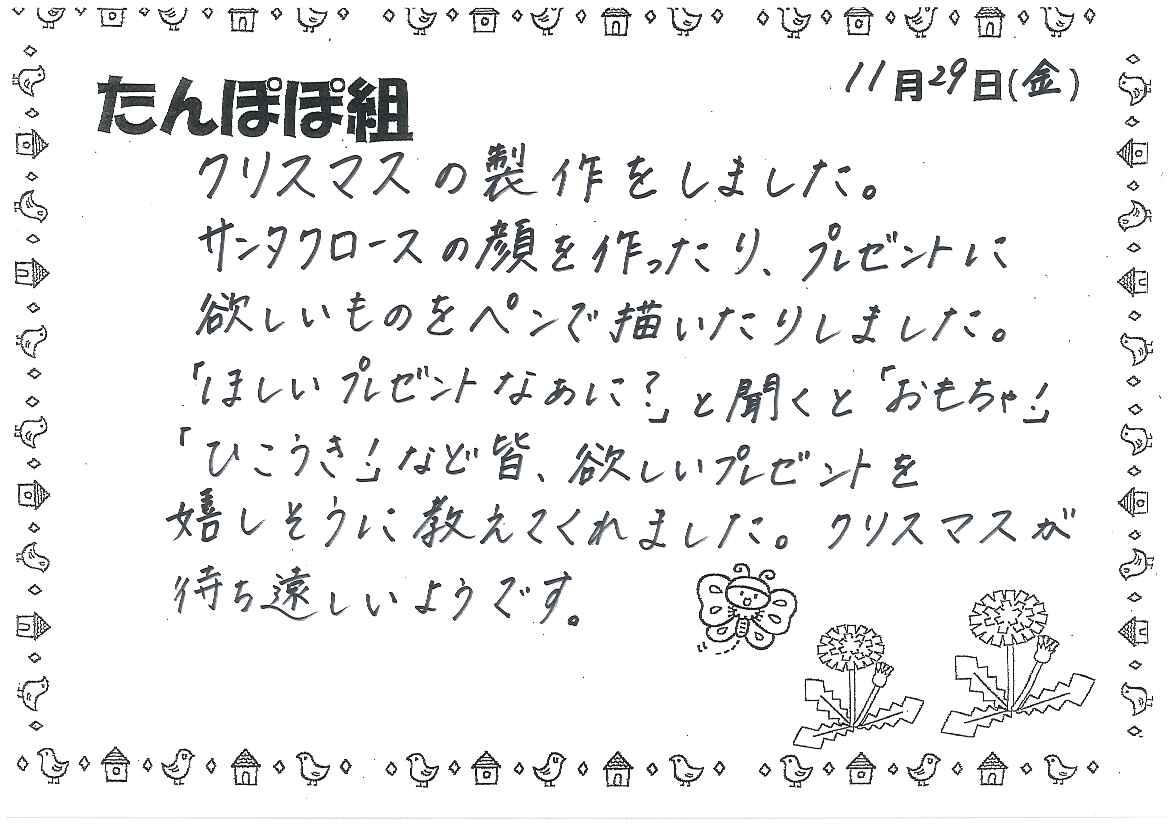 たんぽぽ組
11月29日(金)
クリスマスの製作をしました。
サンタクロースの顔を作ったり、プレゼントに
欲しいものをペンで描いたりしました。
「ほしいプレゼントなぁに?」と聞くと「おもちゃ!」
「ひこうき!」など皆、欲しいプレゼントを
嬉しそうに教えてくれました。クリスマスが
待ち遠しいようです。